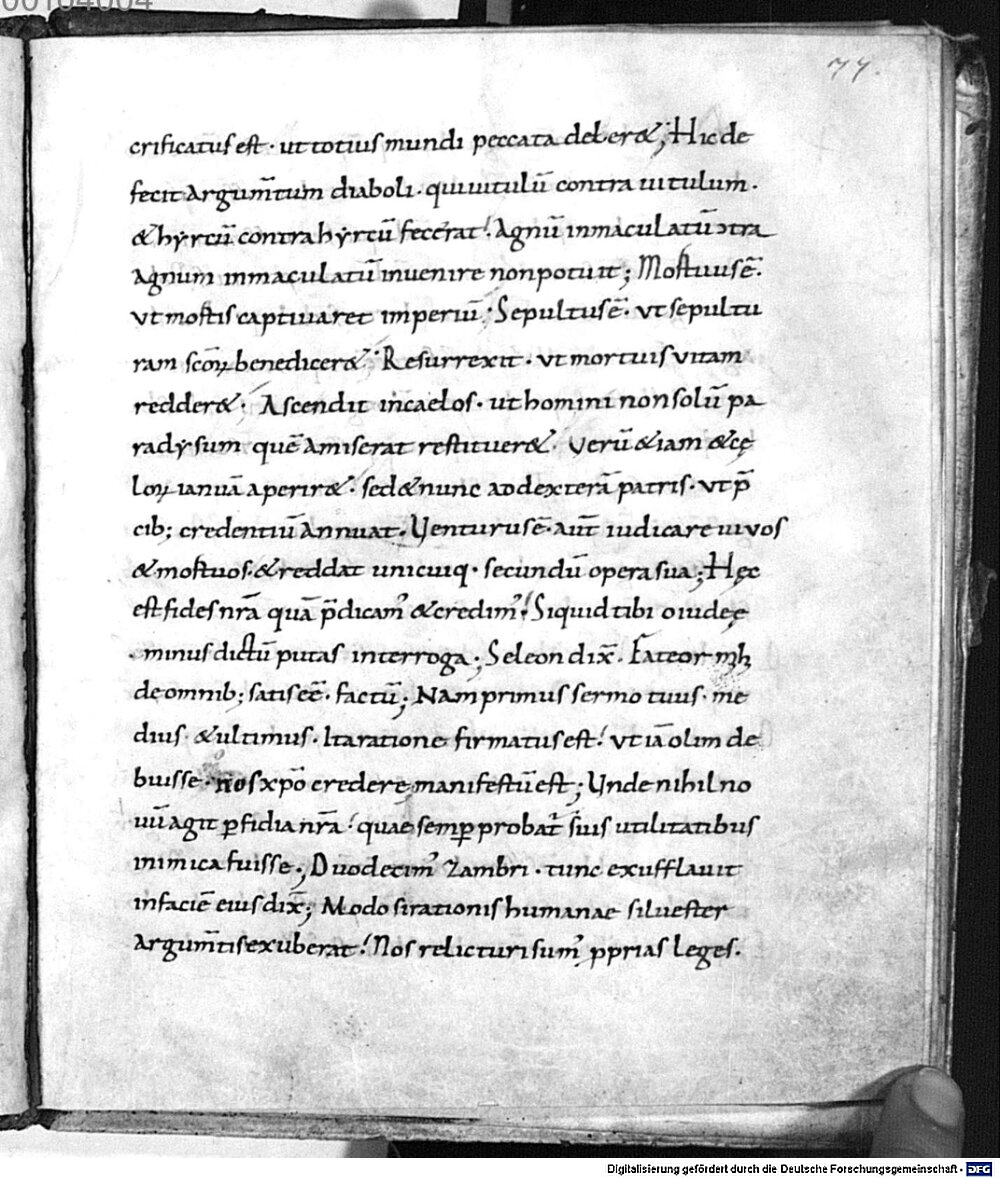 00104004
77.
crificatus est · ut totius mundi peccata deleret&; Hic de
fecit argum̄tum diaboli · qui uitulū contra uitulum ·
& hẏrcū contra hẏrcū fecerat! Agnū inmaculatū ɔtra
Agnum inmaculatū inuenire non potuit; Mortuus ē.
ut mortis captiuaret imperiū; Sepultus ē · ut sepultu
ram scōꝝ benedicer&; Resurrexit · ut mortuis vitam
redder& · Ascendit in caelos · ut homini non solū pa
radẏsum quē amiserat restituer& · Verū & iam & cę
loꝝ ianuā aperir& · sed & nunc ad dexterā patris · ut p̄
cib; credentiū annuat · Venturus ē · aūt iudicare uivos
& mortuos · & reddat unicuiq · secundū opera sua; Hęc
est fides nr̄a quā p̄dicam' & credim'! Si quid tibi o iudeę
minus dictū putas interroga; Seleon dix̄ · Fateor mҺ
de omnib; satis eē · factū; Nam primus sermo tuus · me
dius · & ultimus · Ita ratione firmatus est! ut iā olim de
buisse · nos xp̄o credere manifestū est; Unde nihil no
uū agit ꝑfidia nr̄a! quae semꝑ probat̄ suis utilitatibus
inimica fuisse; Duodecim' Zambri · tunc exufflauit
in faciē eius dix̄; Modo si rationis humanae siluester
argum̄tis exuberat! Nos relicturi sum' ꝓprias leges.
Digitalisierung gefördert durch die Deutsche Forschungsgemeinschaft - DFG